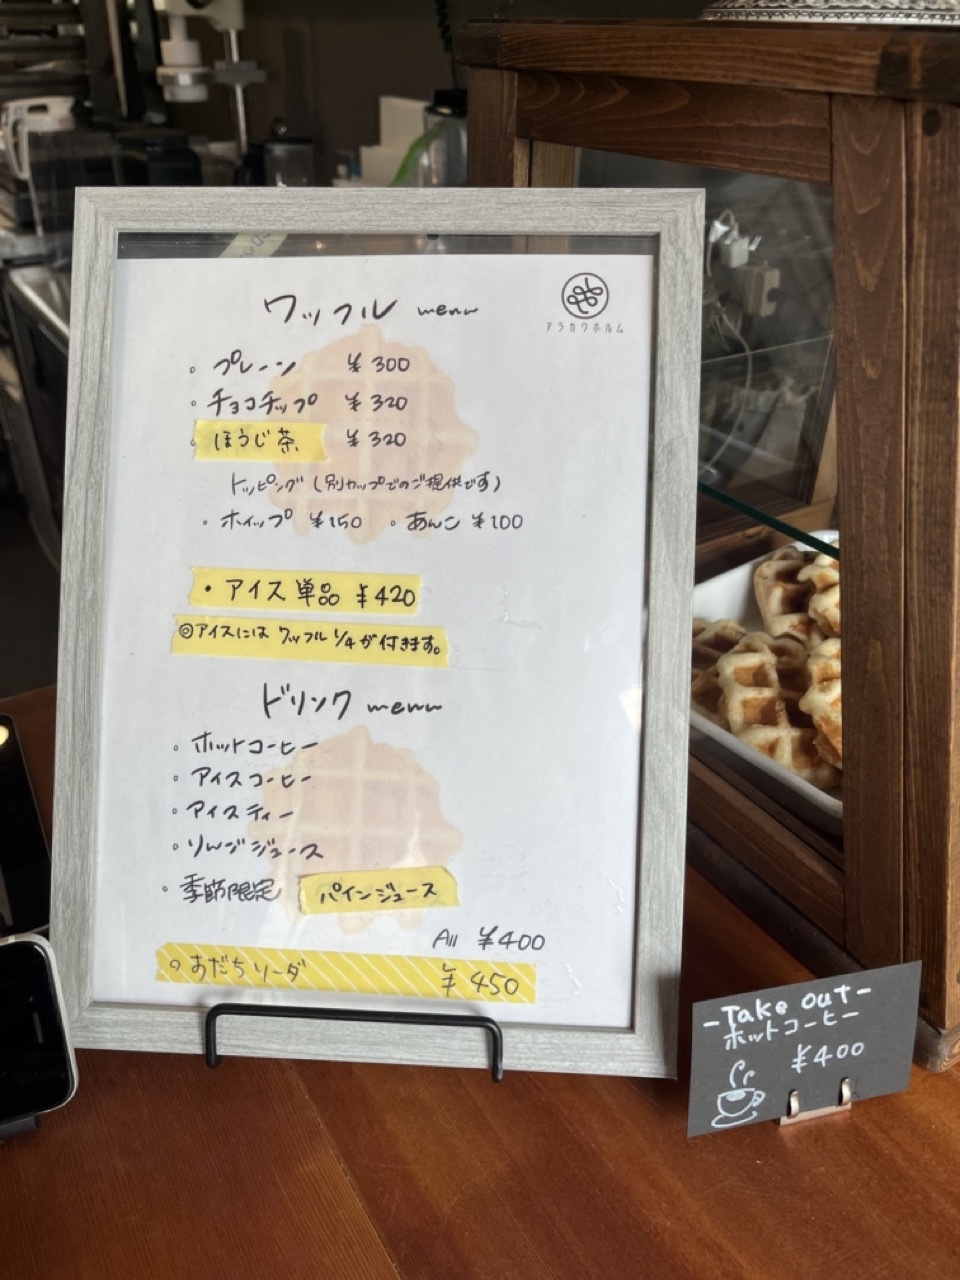 ワッフル menu
アラカワホルム
・プレーン ¥300
・チョコチップ ¥320
・ほうじ茶 ¥320
トッピング(別カップでのご提供です)
・ホイップ ¥150 ・あんこ ¥100
・アイス単品 ¥420
◎アイスには ワッフル 1/4が付きます。
ドリンク menu
・ホットコーヒー
・アイスコーヒー
・アイスティー
・りんごジュース
・季節限定 パインジュース
All ¥400
・あだちソーダ ¥450
-Take out-
ホットコーヒー
¥400